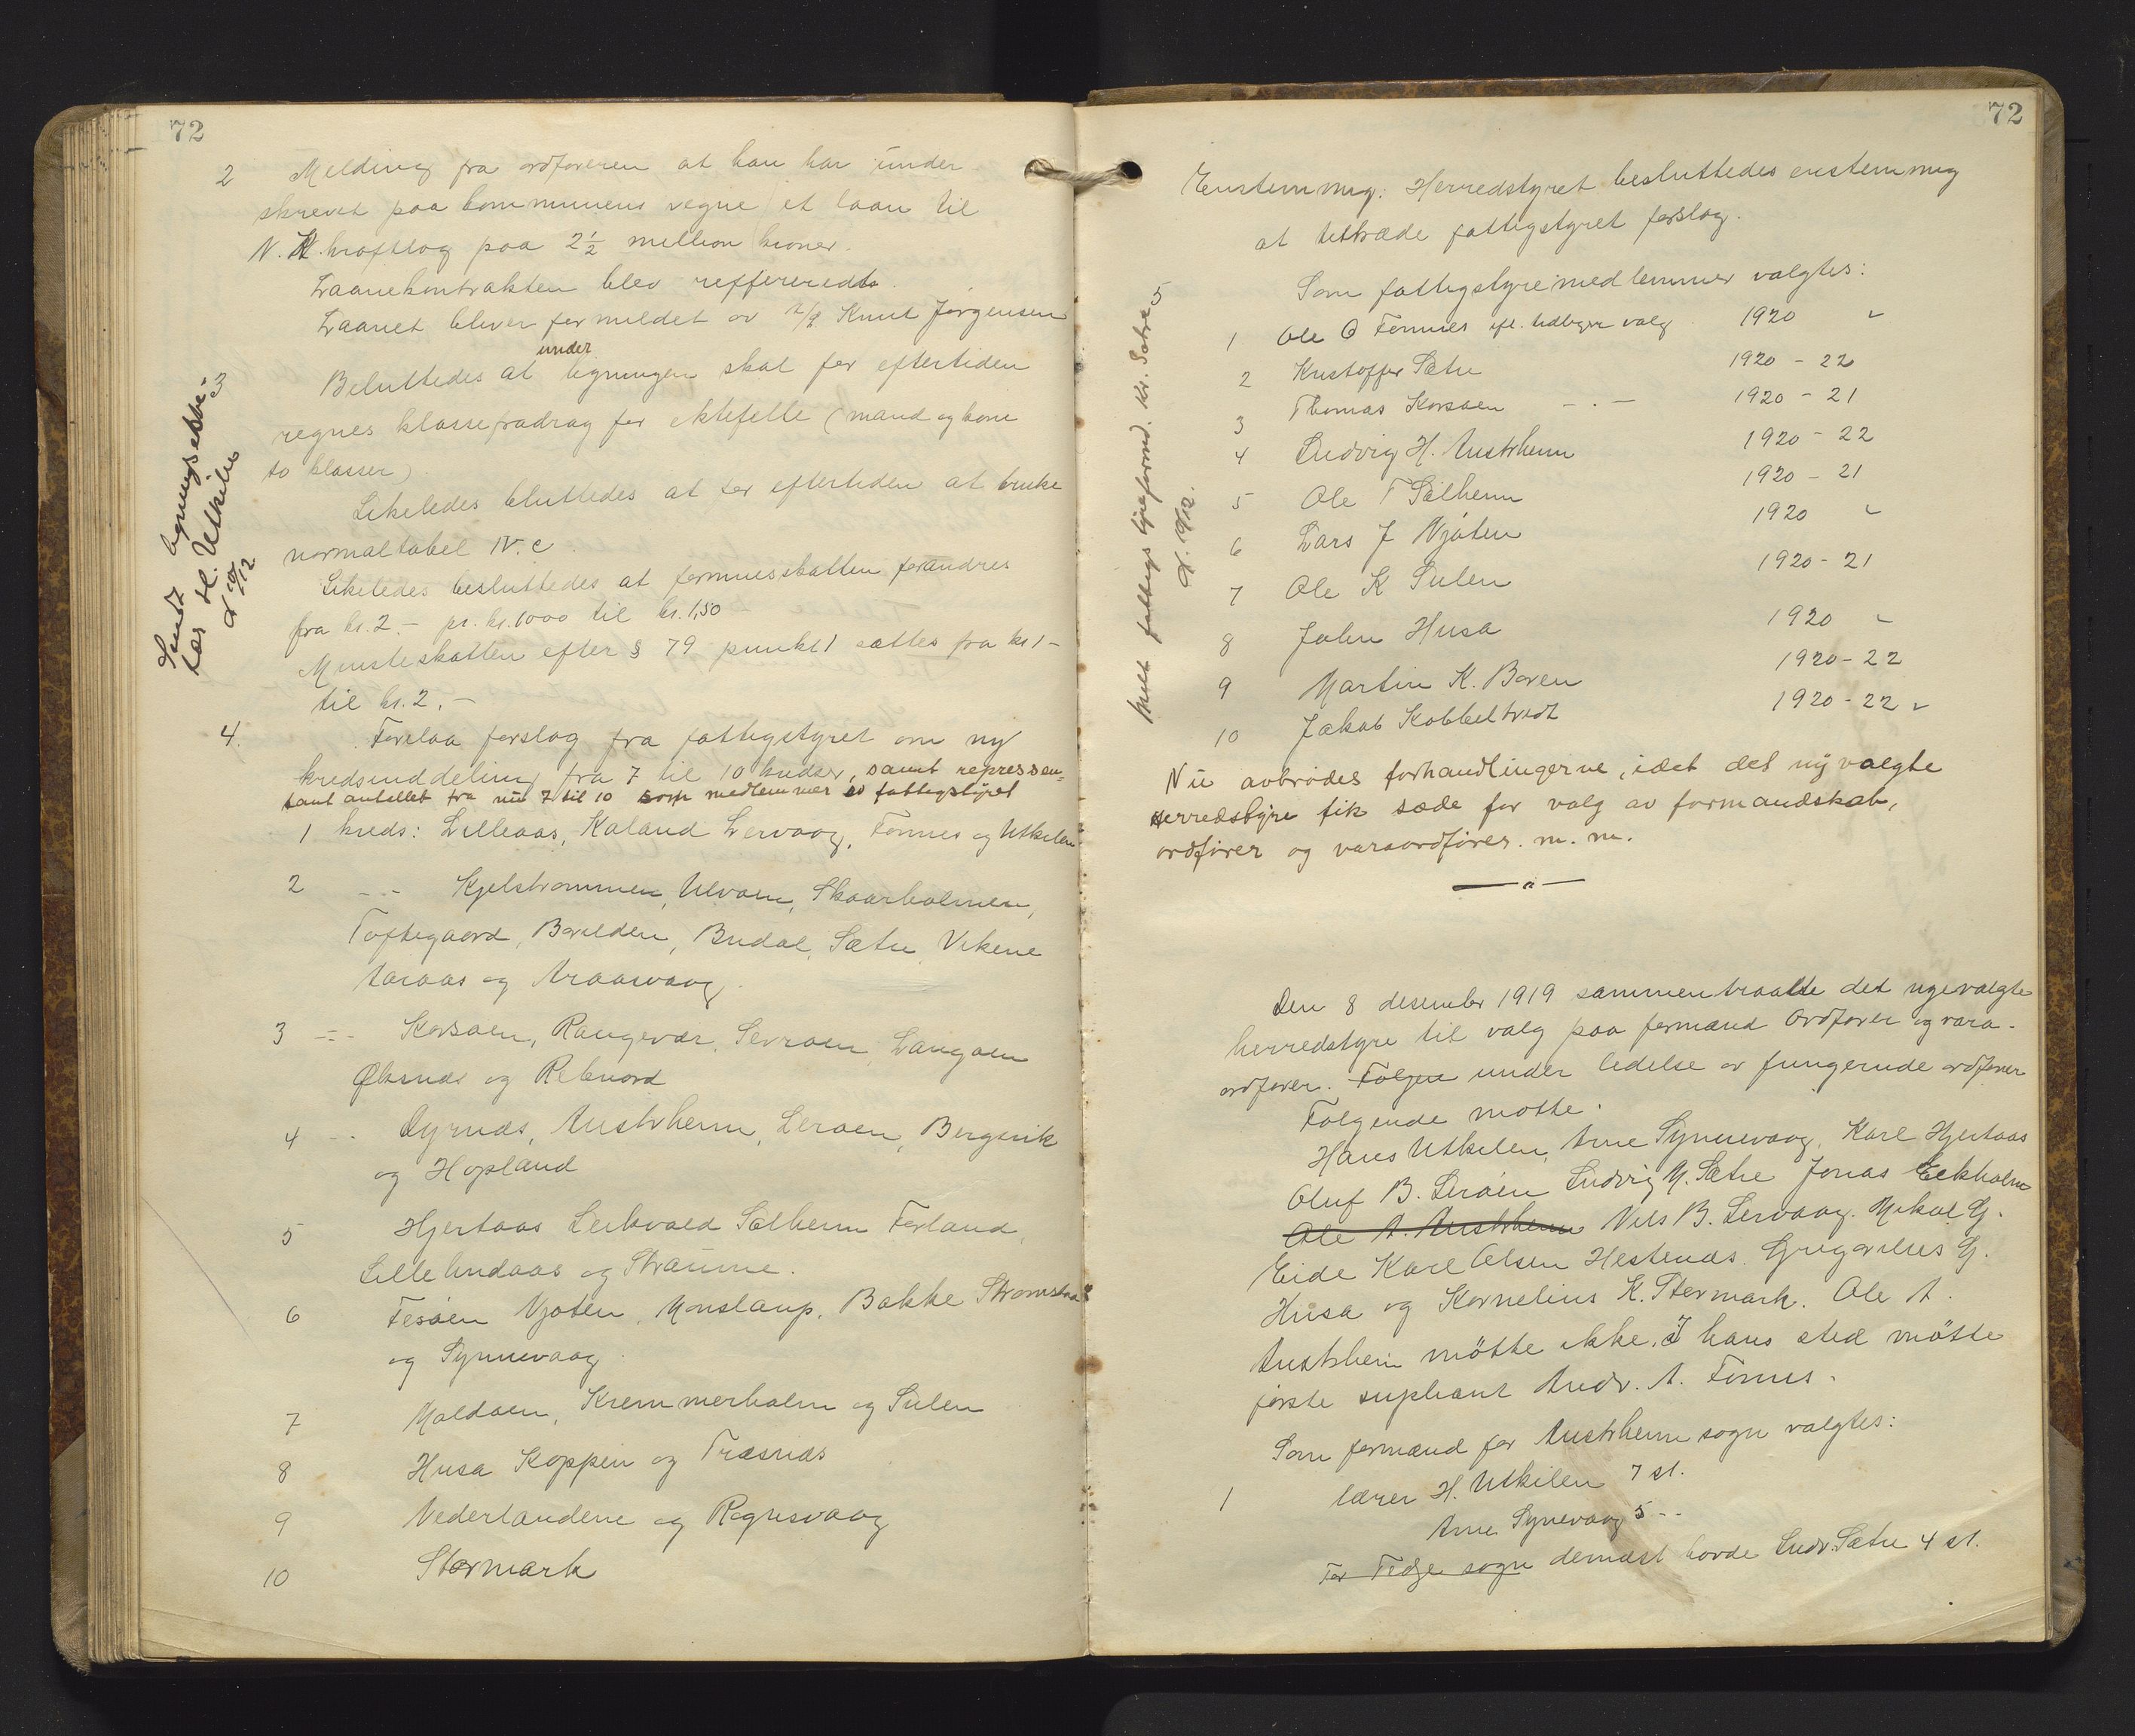 72
2 Melding fra ordføreren at han har under
skrevet paa kommunens vegne et laan til
N. H. kraftlag paa 2½ million kroner.
Laanekontrakten blev reffereredt.
Laanet bliver formidlet av Knut Jørgensen
3 Beluttedes at under ligningen skal for eftertiden
regnes klassefradrag for ektefelle (mand og kone
to klasser).
Likeledes bluttedes at for eftertiden at bruke
normaltabel IV. c.
Likeledes besluttedes at formuesskatten forandres
fra kr. 2.- pr. kr. 1000 til kr. 1,50 -
Minsteskatten efter § 79 punkt 1 sættes fra kr 1 -
til kr. 2. -
Sendt ligningssekr.
lær H. Utkilen
d 10/12
4. Forelaa forslag fra fattigstyret om ny
kredsinddeling fra 7 til 10 kredser, samt represen-
tant antallet fra nu 7 til 10 som medlemmer av fattigstyret
1 kreds: Lilleaas, Kaland Lervaag, Fonnes og Utkilen
2 -- Kjelstraumen, Ulvøen, Skaarholmen,
Toftegaard, Børilden, Budal, Sætre, Vikene
Aaraas og Araasvaag.
3 -- Korsøen, Rongevær, Sævrøen, Langøen
Øksnæs og Rebnord
4 -- Dyrnæs, Austrheim, Lerøen, Bergsvik
og Hopland
5 Hjertaas Leikvold Sælheim Førland,
Lille lindaas og Straume.
6 Fesøen Njøten, Monslaup, Bakke Strømsnes
og Synnevaag.
7 Moldøen, Kremmerholm og Sulen
8 Husa Koppen og Træsnæs
9 Nederlandene og Rognsvaag
10 Stormark
72
Enstemmig: Herredstyret besluttedes enstemmig
at tiltræde fattigstyret forslag.
Som fattigstyremedlemmer valgtes:
1 Ole O Fonnes efl. tidligere valg 1920 "
2 Kristoffer Sætre 1920 - 22
3 Thomas Korsøen - . - 1920 - 21
4 Ludvig H. Austrheim 1920 - 22
5 Ole T Sælheim 1920 - 21
6 Lars J Njøten 1920 "
7 Ole K Sulen 1920 - 21
8 John Husa 1920 "
9 Martin K. Boren 1920 - 22
10 Jakob Kobbeltvedt 1920 - 22 "
Meldt fattigstyreformd. Kr. Sætre 5
d. 10/12.
Nu avbrødes forhandlingerne, idet det nyvalgte
herredstyre fik sæde for valg av formandskab,
ordfører og varaordfører. m. m.
Den 8 desember 1919 sammentraadte det nyevalgte
herredstyre til valg paa formænd Ordfører og vara-
ordfører. Følgen under ledelse av fungerende ordfører
Følgende møtte.
Hans Utkilen, Arne Synnevaag, Karl Hjertaas
Oluf B. Lerøen Ludvig M. Sætre Jonas Eekholm
Ole A. Austrheim Nils B. Lervaag. Mikal G.
Eide Karl Olsen Hestenæs. Gregorius G.
Husa og Kornelius K. Stormark. Ole A.
Austrheim møtte ikke. I hans sted møtte
første supleant Andr. A. Fonnes.
Som formænd for Austrheim sogn valgtes:
1 lærer H. Utkilen 7 st.
Arne Synnevaag 5 --
For Fedje sogn dernæst havde Ludv. Sætre 4 st.